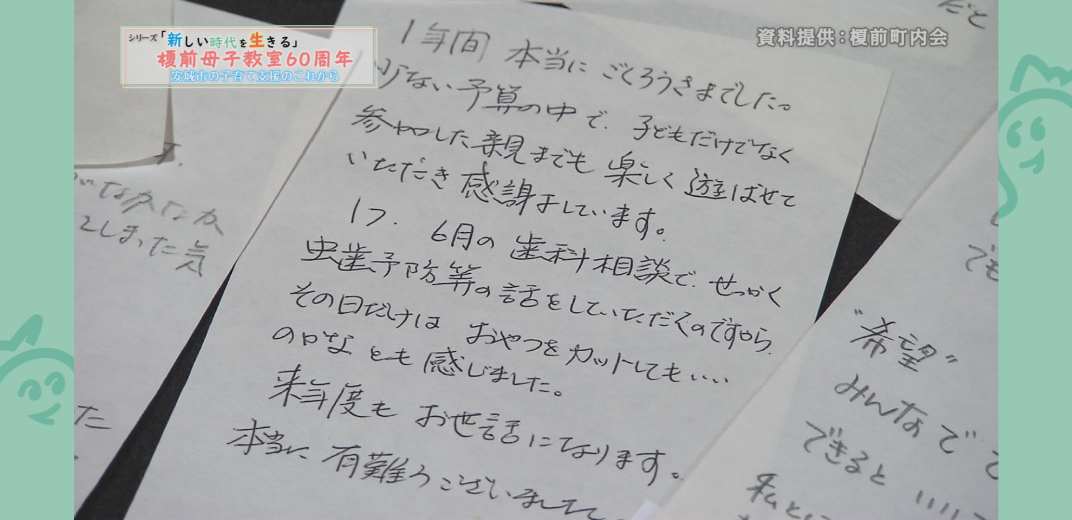 シリーズ「新しい時代を生きる」
榎前母子教室60周年
安城市の子育て支援のこれから
資料提供：榎前町内会
1年間 本当に ごくろうさまでした。
少ない予算の中で、子どもだけでなく
参加した親までも 楽しく 遊ばせて
いただき 感謝しています。
1つ、6月の 歯科相談で、せっかく
虫歯予防等の話をしていただくのですから、
その日だけは おやつを カットしても‥‥
のかな とも 感じました。
来年度も お世話になります。
本当に 有難うございました。
なかなか
てしまった気
た
だと
でも
"希望"
みんなで
できると
私と